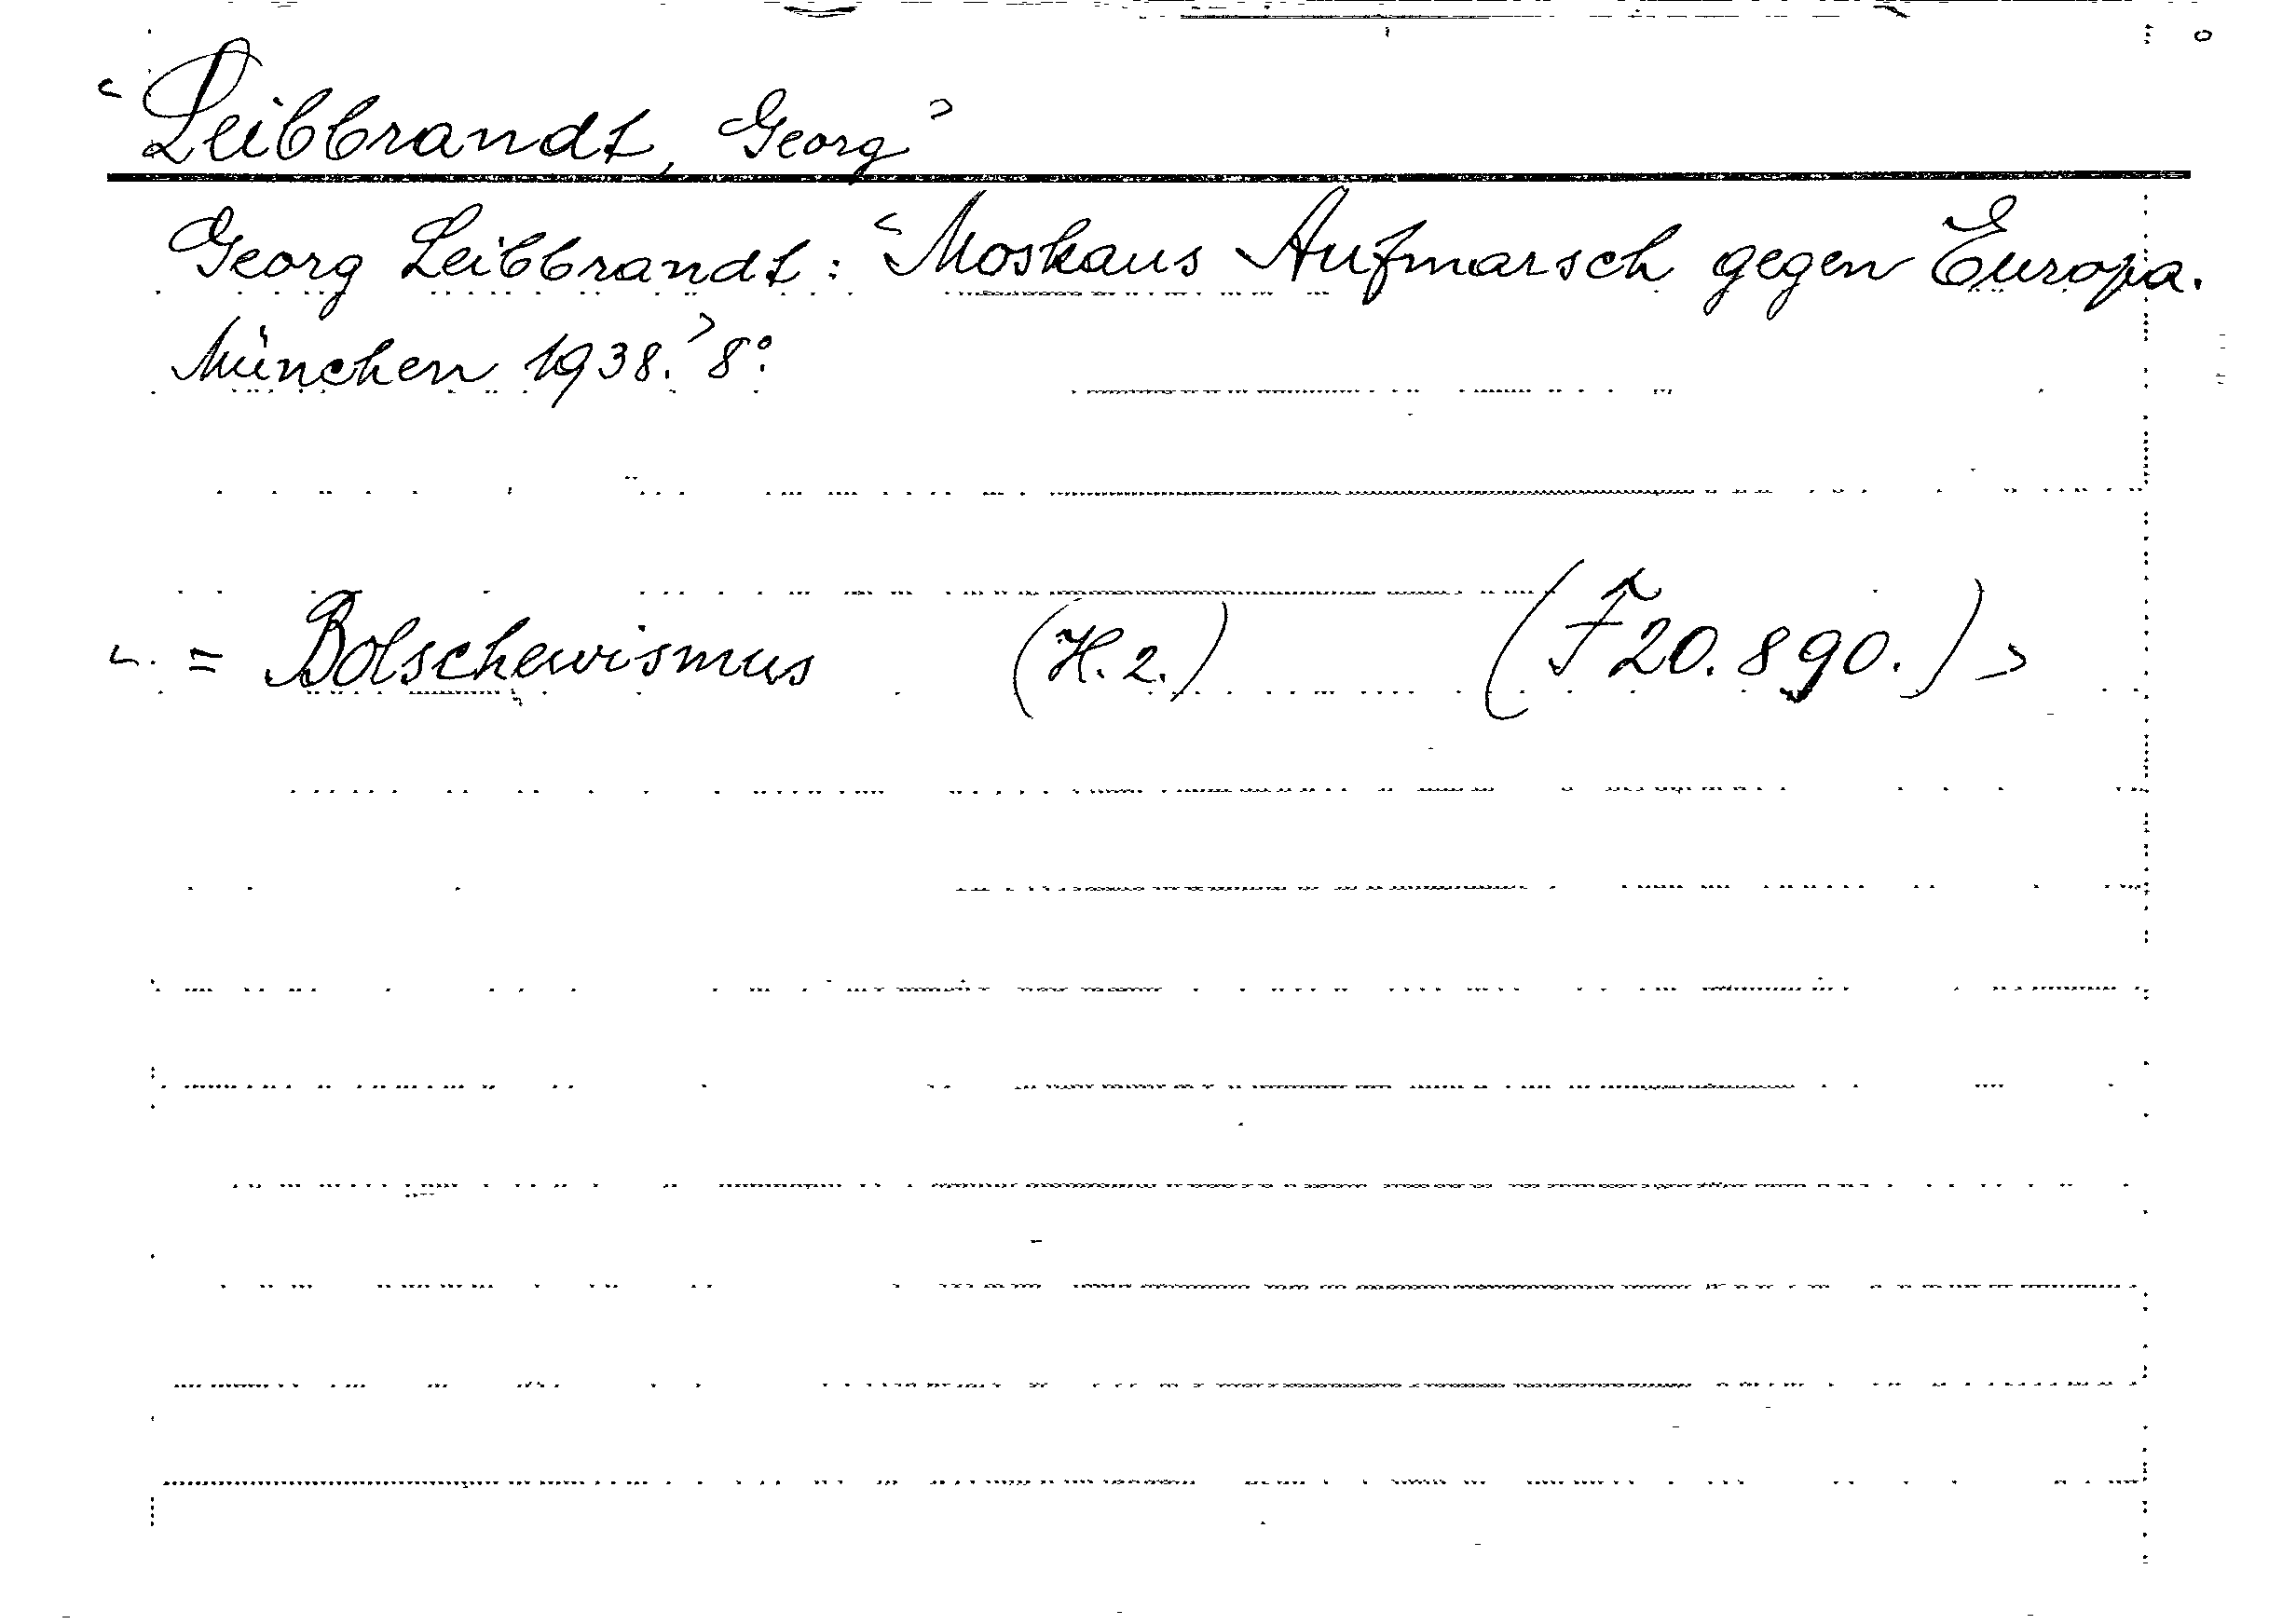 <Leibbrandt, Georg>
Georg Leibbrandt: <Moskaus Aufmarsch gegen Europa.
München 1938.> 8°.
<. = Bolschewismus (H. 2.) (F 20.890.)>